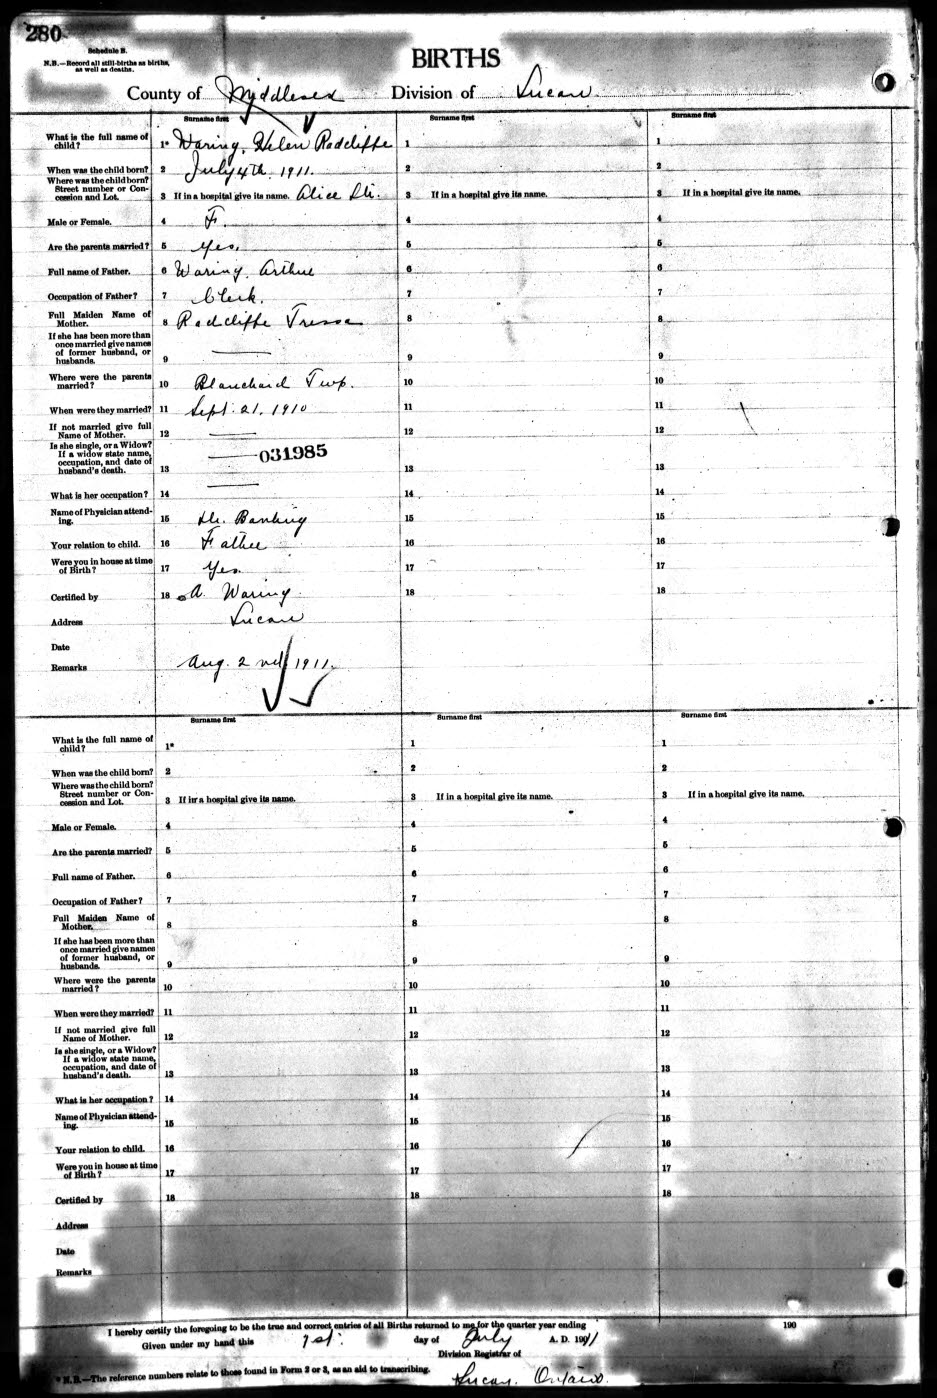 280
Schedule B.
N.B.—Record all still-births as births,
as well as deaths.
BIRTHS
County of Middlesex Division of Lucan
Surname first
Surname first
Surname first
What is the full name of
child?
1* Waring, Helen Radcliffe
1
1
When was the child born? 2 July 4th. 1911.
2
2
Where was the child born?
Street number or Con-
cession and Lot.
3 If in a hospital give its name. Alice St.
3 If in a hospital give its name.
3 If in a hospital give its name.
Male or Female. 4 F.
4
4
Are the parents married? 5 Yes.
5
5
Full name of Father. 6 Waring, Arthur
6
6
Occupation of Father? 7 Clerk.
7
7
Full Maiden Name of
Mother.
8 Radcliffe Tressa
8
8
If she has been more than
once married give names
of former husband, or
husbands.
9 ——
9
9
Where were the parents
married?
10 Blanchard Twp.
10
10
When were they married? 11 Sept. 21. 1910
11
11
If not married give full
Name of Mother.
12 ——
12
12
Is she single, or a Widow?
If a widow state name,
occupation, and date of
husband's death.
13 —— 031985
13
13
What is her occupation? 14 ——
14
14
Name of Physician attend-
ing.
15 Dr. Banting
15
15
Your relation to child. 16 Father
16
16
Were you in house at time
of Birth?
17 Yes.
17
17
Certified by 18 A. Waring.
18
18
Address Lucan
Date
Remarks Aug. 2nd 1911.
Surname first
Surname first
Surname first
What is the full name of
child?
1*
1
1
When was the child born? 2
2
2
Where was the child born?
Street number or Con-
cession and Lot.
3 If in a hospital give its name.
3 If in a hospital give its name.
3 If in a hospital give its name.
Male or Female. 4
4
4
Are the parents married? 5
5
5
Full name of Father. 6
6
6
Occupation of Father? 7
7
7
Full Maiden Name of
Mother.
8
8
8
If she has been more than
once married give names
of former husband, or
husbands.
9
9
9
Where were the parents
married?
10
10
10
When were they married? 11
11
11
If not married give full
Name of Mother.
12
12
12
Is she single, or a Widow?
If a widow state name,
occupation, and date of
husband's death.
13
13
13
What is her occupation? 14
14
14
Name of Physician attend-
ing.
15
15
15
Your relation to child. 16
16
16
Were you in house at time
of Birth?
17
17
17
Certified by 18
18
18
Address
Date
Remarks
I hereby certify the foregoing to be the true and correct entries of all Births returned to me for the quarter year ending 190
Given under my hand this 1st. day of July A. D. 1911
Division Registrar of
* N.B.—The reference numbers relate to those found in Form 2 or 3, as an aid to transcribing.
Lucan, Ontario.